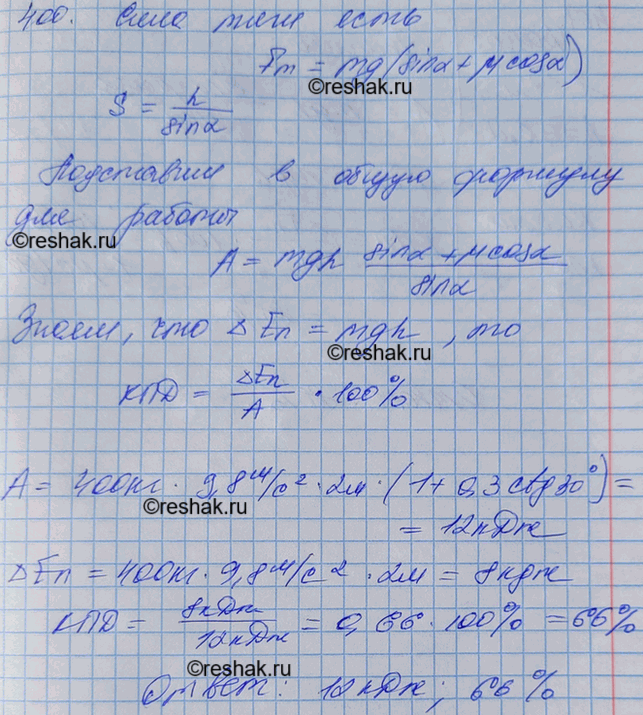 400. Сила тяги есть
Fт = mg(sinα + μcosα)
©reshak.ru
S = h/sinα
Подставим в общую формулу
для работы
©reshak.ru
A = mgh (sinα + μcosα)/sinα
Знаем, что ΔEп = mgh, то
©reshak.ru
КПД = ΔEп/A · 100%
A = 400кг · 9,8м/с² · 2м · (1 + 0,3 ctg30°) =
©reshak.ru
= 12кДж
ΔEп = 400кг · 9,8м/с² · 2м = 8кДж
КПД = 8кДж/12кДж = 0,66 · 100% = 66%
©reshak.ru
Ответ: 12кДж; 66%